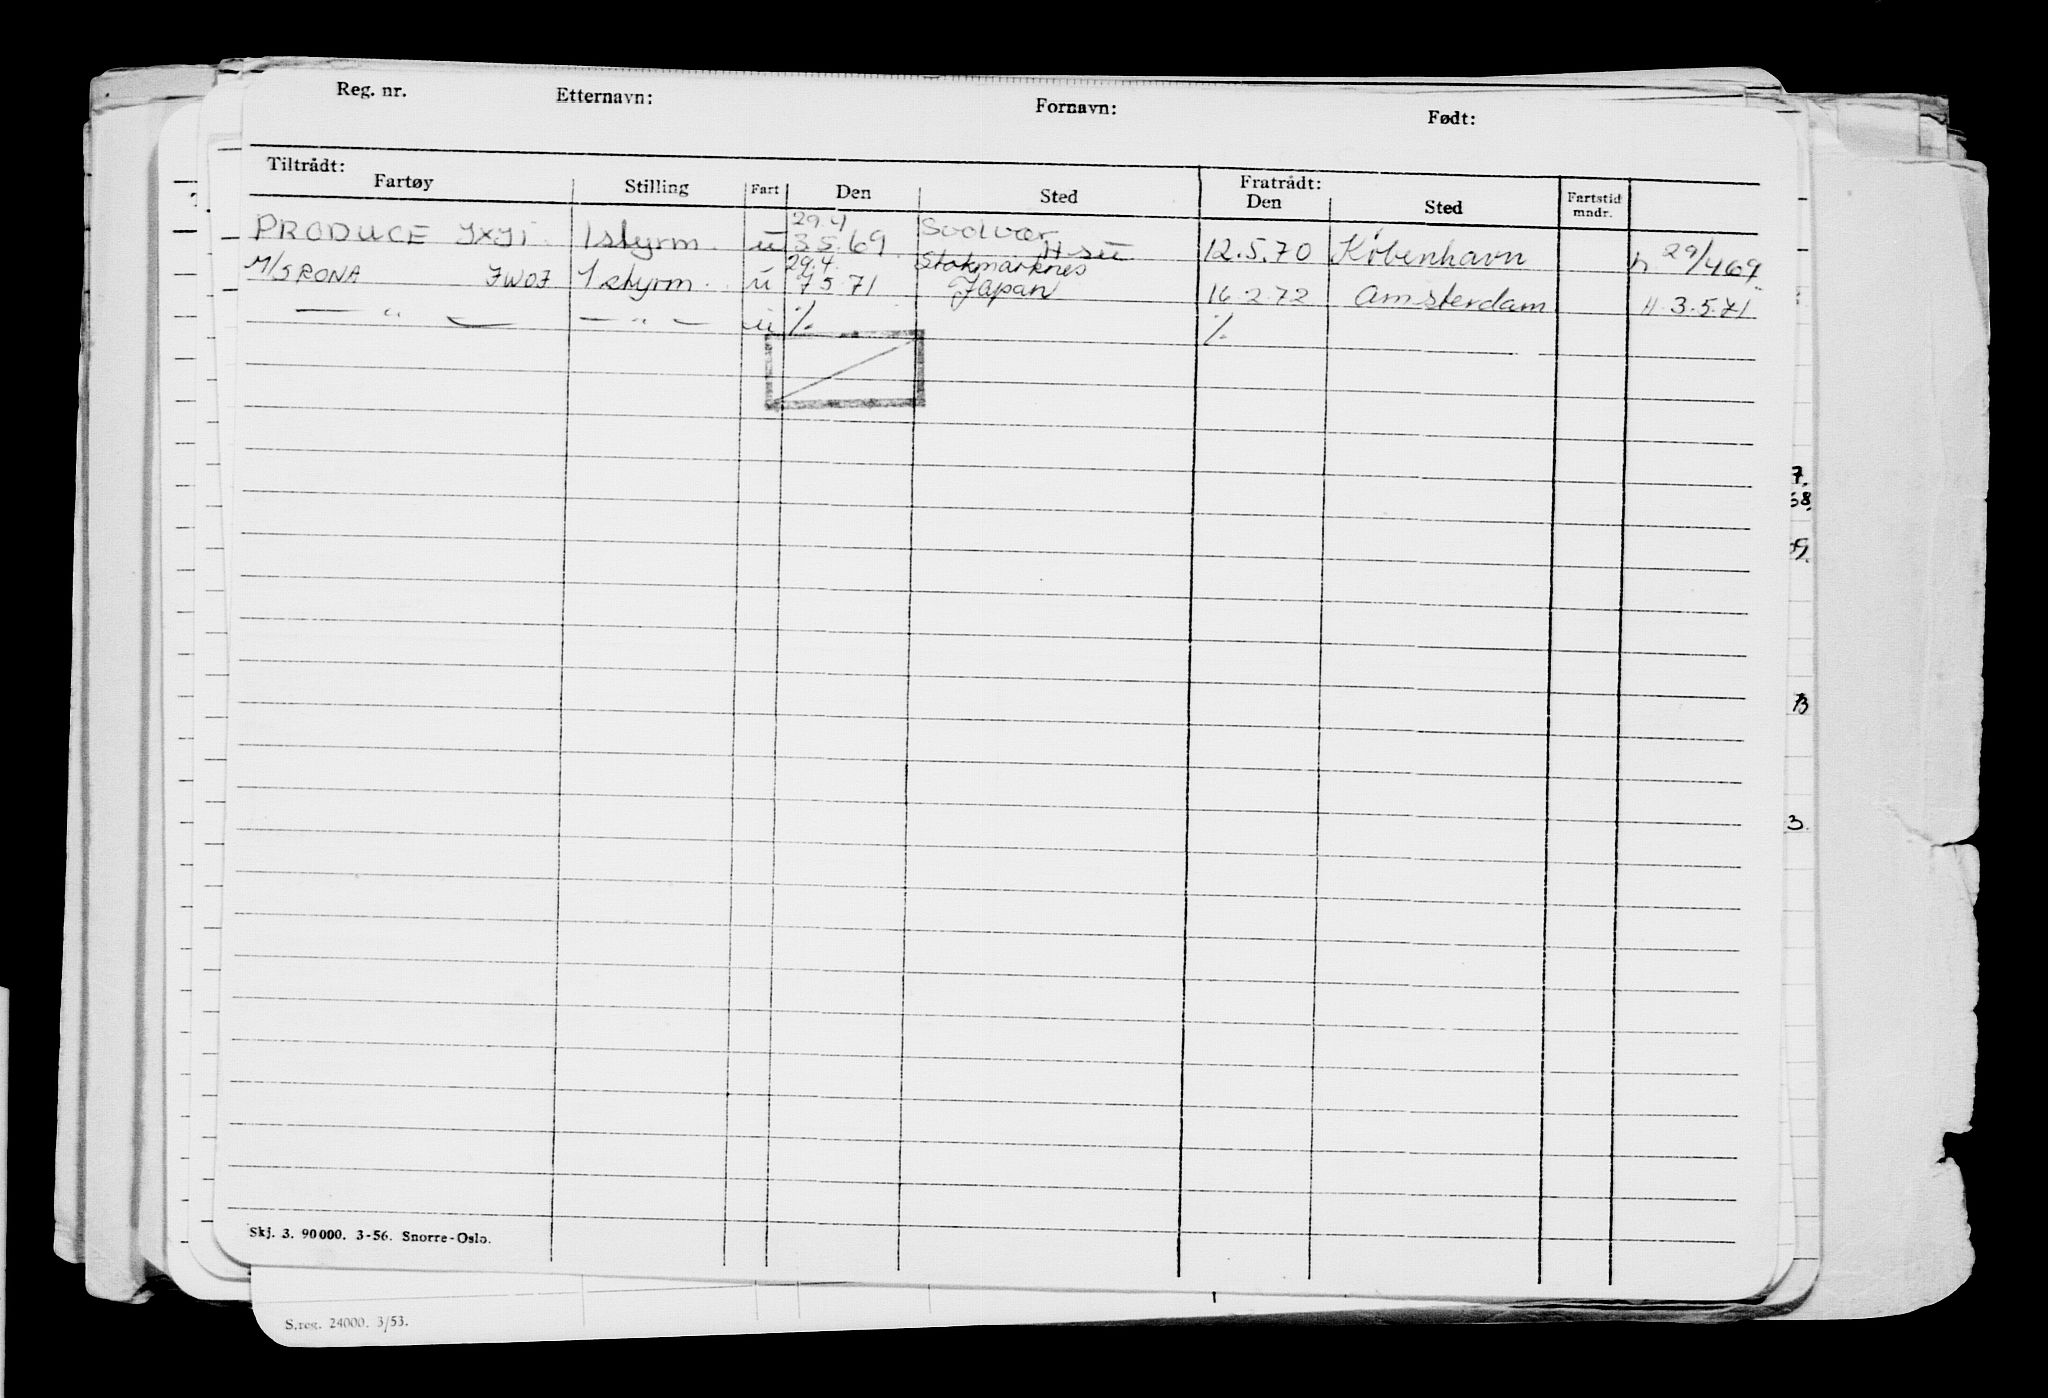 Reg. nr. Etternavn: Fornavn: Født:
Tiltrådt: Fratrådt:
Fartøy Stilling Fart Den Sted Den Sted Fartstid mndr.
29.4 Svolvær
PRODUCE JXJI. 1 styrm. u 3.5.69. 12.5.70 København h. 29/4 69.
29.4. Stokmarknes
M/S RONA JWOJ 1 styrm. u 7.5.71 Japan 16.2.72 Amsterdam H. 3.5.71.
— " — — " — u ./. ./.
7.
68.
69.
3.
Skj. 3. 90000. 3-56. Snorre-Oslo.
S.reg. 24000. 3/53.